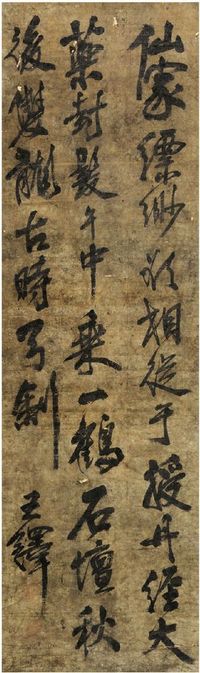 仙家縹緲欲相從手授丹經大
藥封鼓午中乘一鶴石壇秋
後雙龍古時弓劍
王鐸